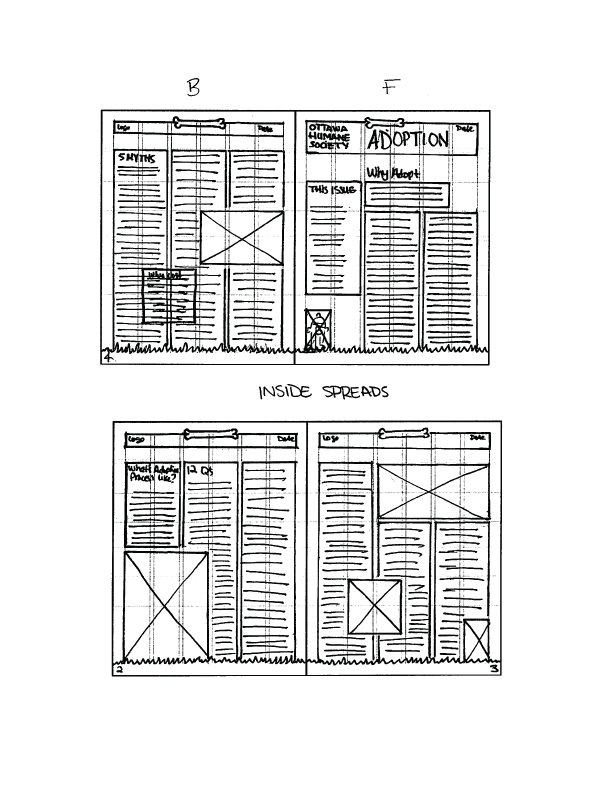 B
F
Logo
Date
5 MYTHS
4
OTTAWA
HUMANE
SOCIETY
ADOPTION
Date
Why Adopt
THIS ISSUE
INSIDE SPREADS
Logo
Date
What's Adoption
Process Like?
12 Q's
2
Logo
Date
3